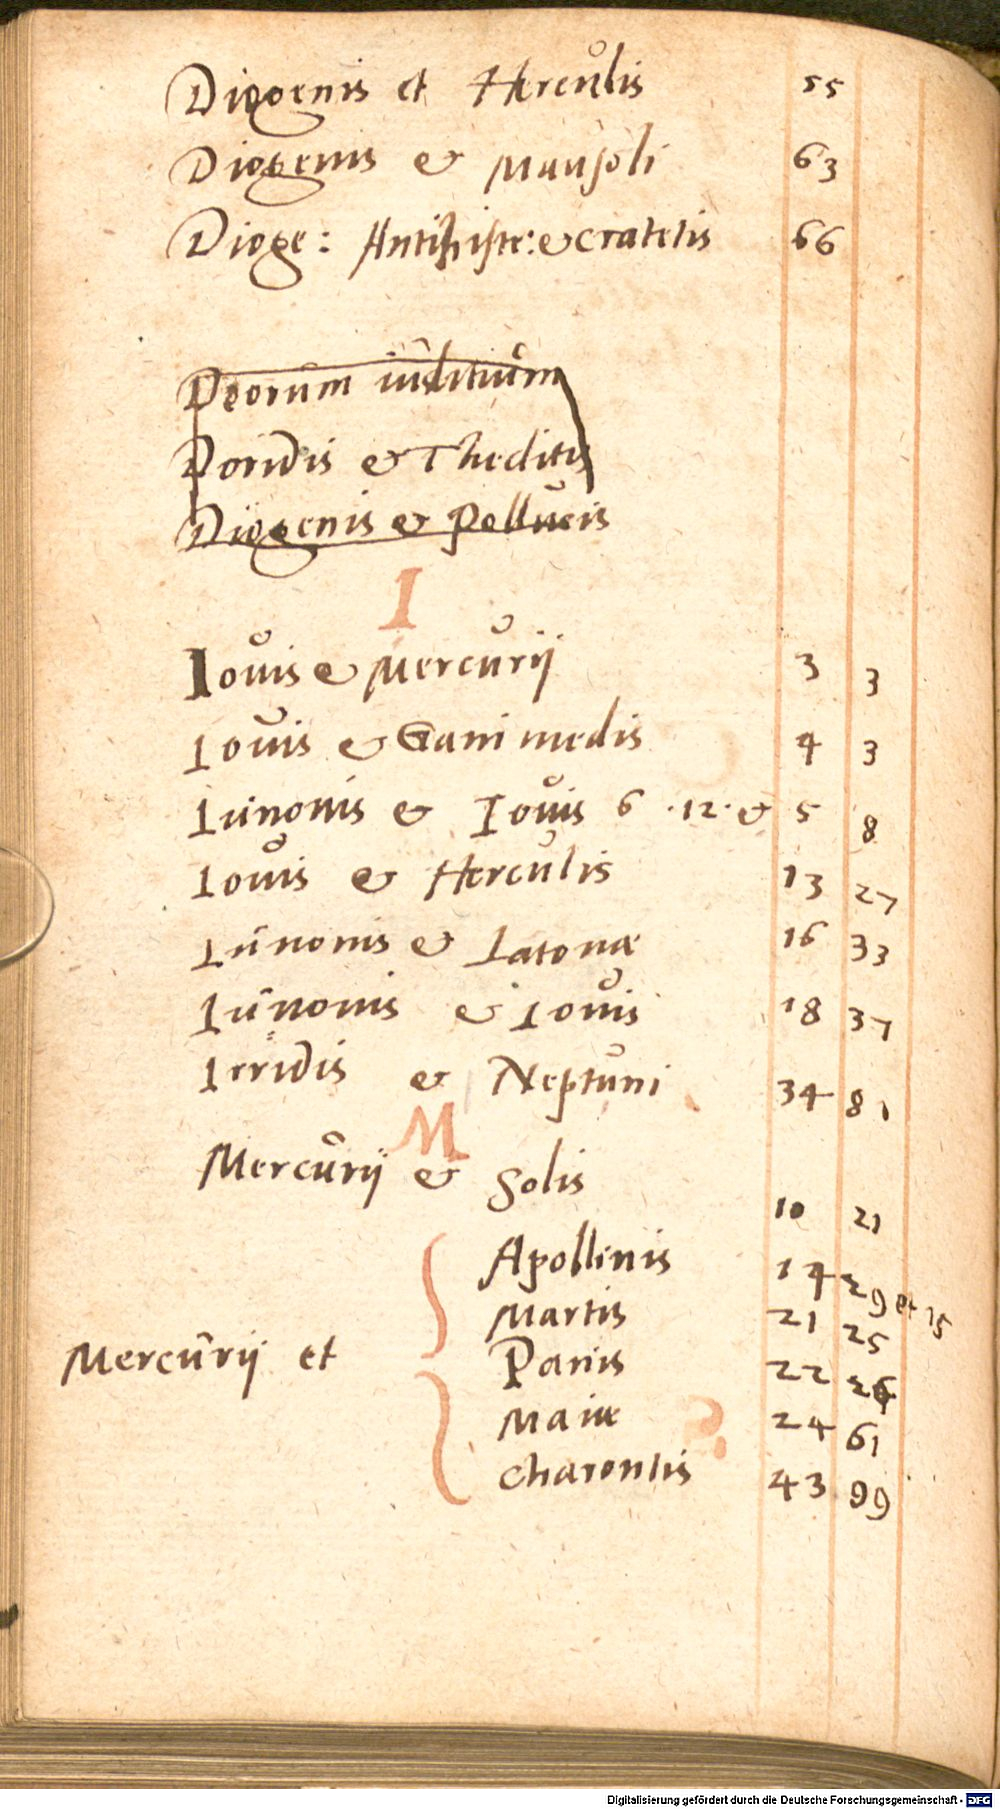 Diogenis et Hercŭlis 55
Diogenis & Mausoli 63
Dioge: Antihiste: & cratetis 66
Deorŭm iŭditiŭm
Doridis & Theditis
Diogenis & Pollucis
I
Iovis & Mercŭrij 3 3
Iovis & Ganimedis 4 3
Iŭnonis & Iovis 6 · 12 · & 5 8
Iovis & Hercŭlis 13 27
Iŭnonis & Latonæ 16 33
Iŭnonis & Iovis 18 37
Irridis & Neptŭni 34 81
M
Mercŭrij & Solis 10 21
Apollinis 14 29 et 15
Martis 21 25
Mercŭrij et Panis 22
Maiæ 24 61
Charontis 43 99
Digitalisierung gefördert durch die Deutsche Forschungsgemeinschaft - DFG